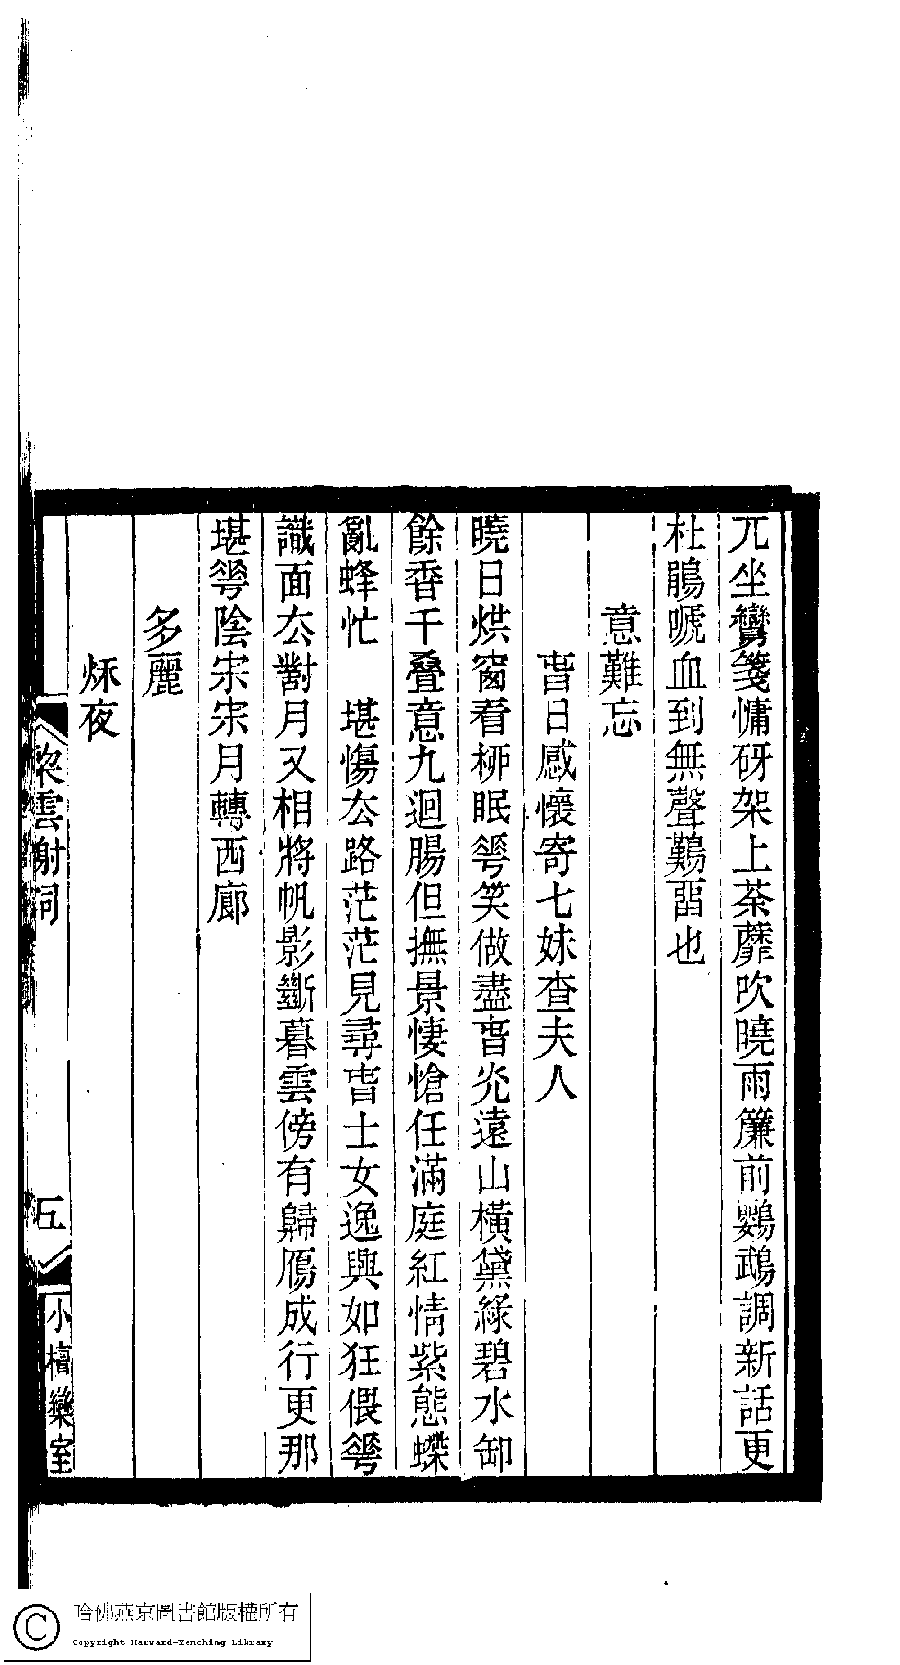 兀坐鸞箋慵硏架上荼蘼吹曉雨簾前鸚鵡調新話更
杜鵑嗁血到無聲鷄畱也
意難忘
旾日感懷寄七妹查夫人
曉日烘窗看桺眠蕚笑做盡旾光遠山橫黛綠碧水卸
餘香千疊意九迴腸但撫景悽愴任滿庭紅情紫態蜨
亂蜂忙　堪傷厺路茫茫見尋旾士女逸興如狂偎蕚
識面厺對月又相將帆影斷暮雲傍有歸鴈成行更那
堪蕚陰宋宋月轉西廊
多麗
秌夜
棃雲榭詞
五
小檀欒室
哈佛燕京圖書館版權所有
Copyright Harvard-Yenching Library